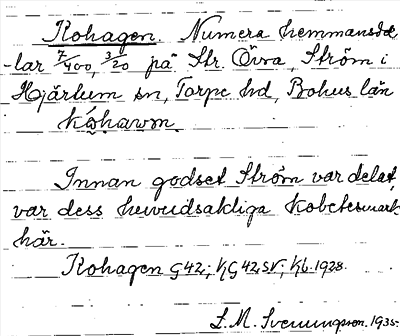 Kohagen. Numera hemmansde
-lar 7/400, 3/20 på Str. Övra, Ström i
Hjärtum sn, Torpe hd, Bohus län
kóhawm.
Innan godset Ström var delat,
var dess huvudsakliga kobetesmark
här.
Kohagen G42; KG42, SV; Kb. 1928.
L. M. Svenungson. 1935.